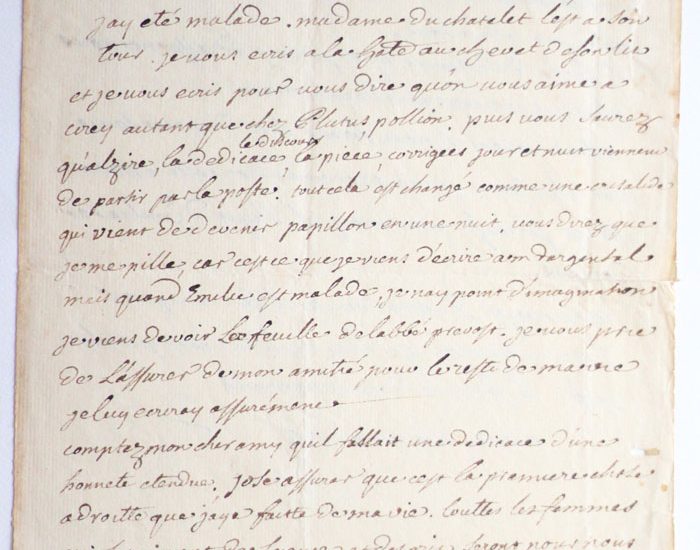 jay eté malade. madame du chatelet l'est a son
tour. je vous ecris a la hate au chevet de son lit
et je vous ecris pour vous dire qu'on vous aime a
cirey autant que chez Plutus pollion. puis vous saurez
le discours
qu'alzire, la dedicace, la piece, corrigées jour et nuit viennent
de partir par la poste. tout cela est changé comme une crisalide
qui vient de devenir papillon en une nuit. vous direz que
je me pille, car c'est ce que je viens d'écrire a m dargental
mais quand Emilie est malade, je nay point d'imagination
je viens de voir la feuille de labbé prevost. je vous prie
de l'assurer de mon amitié pour le reste de ma vie
je luy ecriray assurément.
comptez mon cher amy quil fallait une dedicace d'une
honnete etendue. jose assurer que cest la premiere chose
adroitte que j'aye faitte de ma vie. touttes les femmes
seront nous nous